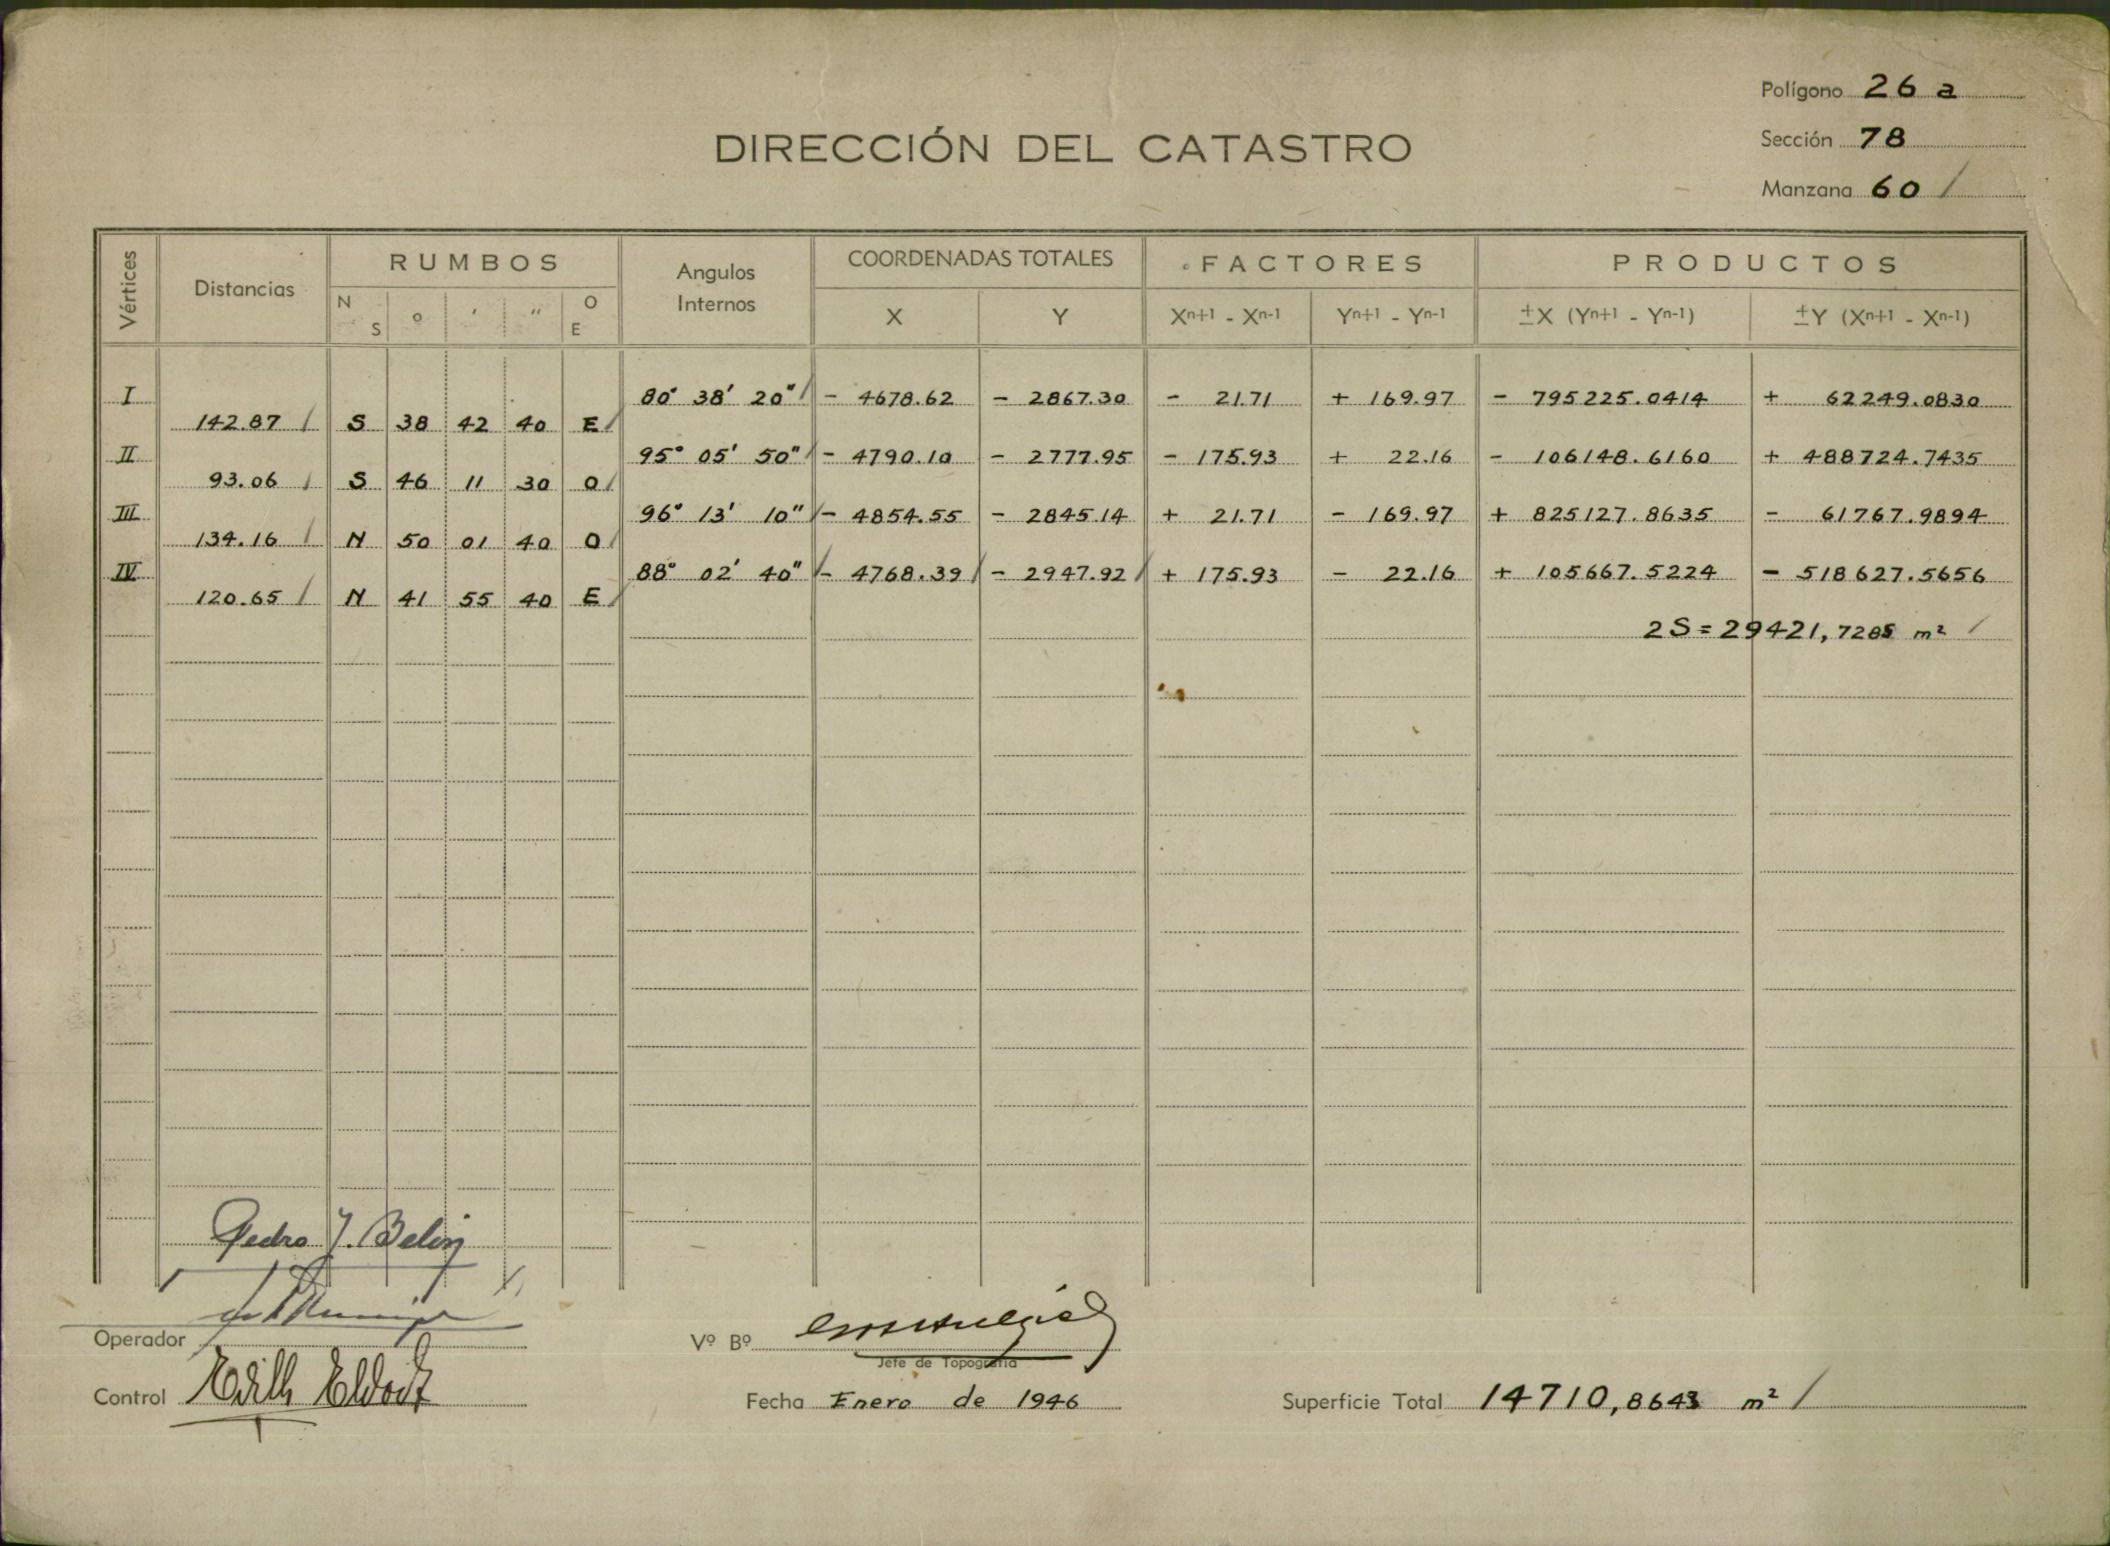 Polígono 26 a
DIRECCIÓN DEL CATASTRO
Sección 78
Manzana 60 /
Vértices Distancias RUMBOS Angulos Internos COORDENADAS TOTALES FACTORES PRODUCTOS
N S ° ' " O E X Y Xn+1 - Xn-1 Yn+1 - Yn-1 ±X (Yn+1 - Yn-1) ±Y (Xn+1 - Xn-1)
I 80° 38' 20" / - 4678.62 - 2867.30 - 21.71 + 169.97 - 795225.0414 + 62249.0830
142.87 / S 38 42 40 E /
II 95° 05' 50" / - 4790.10 - 2777.95 - 175.93 + 22.16 - 106148.6160 + 488724.7435
93.06 / S 46 11 30 O /
III 96° 13' 10" / - 4854.55 - 2845.14 + 21.71 - 169.97 + 825127.8635 - 61767.9894
134.16 / N 50 01 40 O /
IV 88° 02' 40" / - 4768.39 / - 2947.92 / + 175.93 - 22.16 + 105667.5224 - 518627.5656
120.65 / N 41 55 40 E /
2S = 29421,7285 m² /
Pedro J.
Operador
Vº Bº
Jefe de Topografía
Control
Fecha Enero de 1946
Superficie Total 14710,8643 m² /